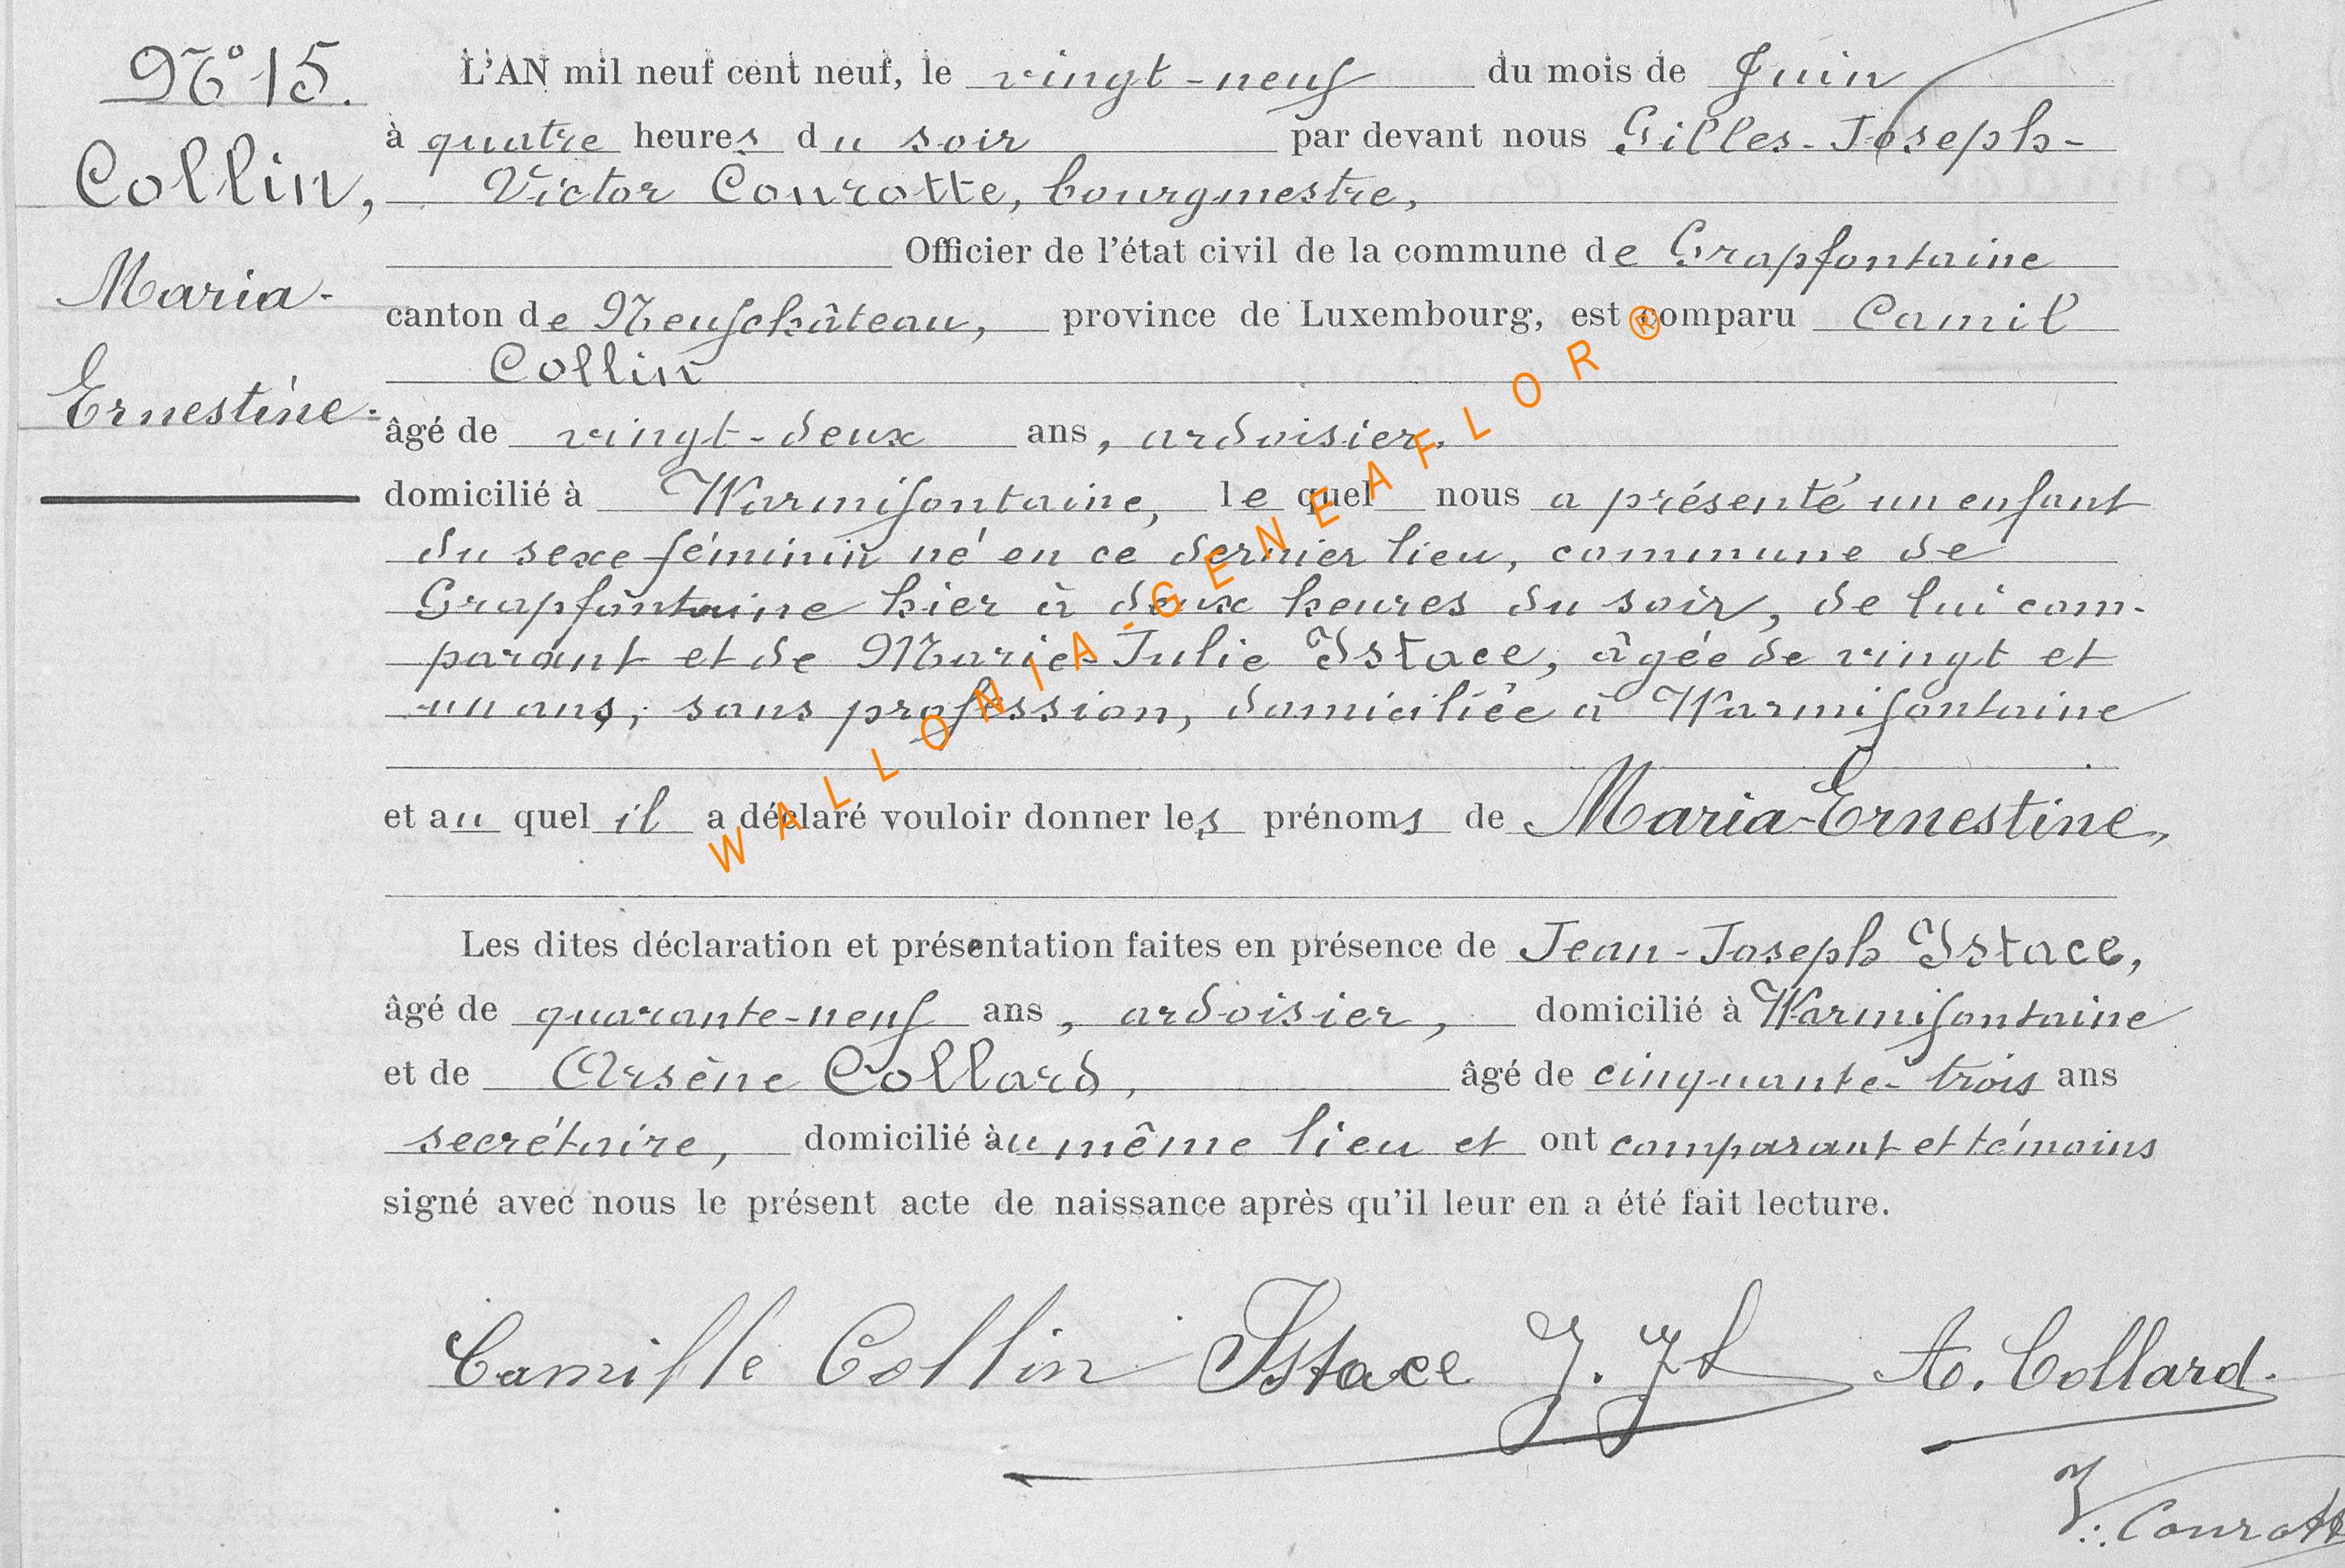 N° 15.
Collin,
Maria-
Ernestine.
L'AN mil neuf cent neuf, le vingt-neuf du mois de Juin
à quatre heures du soir par devant nous Gilles-Joseph-
Victor Conrotte, bourgmestre,
Officier de l'état civil de la commune de Grapfontaine
canton de Neufchâteau, province de Luxembourg, est comparu Camil
Collin
âgé de vingt-deux ans, ardoisier,
domicilié à Warmifontaine, le quel nous a présenté un enfant
du sexe féminin né en ce dernier lieu, commune de
Grapfontaine hier à deux heures du soir, de lui com-
parant et de Marie-Julie Istace, âgée de vingt et
un ans, sans profession, domiciliée à Warmifontaine
et au quel il a déclaré vouloir donner les prénoms de Maria-Ernestine,
Les dites déclaration et présentation faites en présence de Jean-Joseph Istace,
âgé de quarante-neuf ans, ardoisier, domicilié à Warmifontaine
et de Arsène Collard, âgé de cinquante-trois ans
secrétaire, domicilié àu même lieu et ont comparant et témoins
signé avec nous le présent acte de naissance après qu'il leur en a été fait lecture.
Camille Collin Istace J. J A. Collard.
V. Conrotte
WALLONIA-GENEAFLOR®